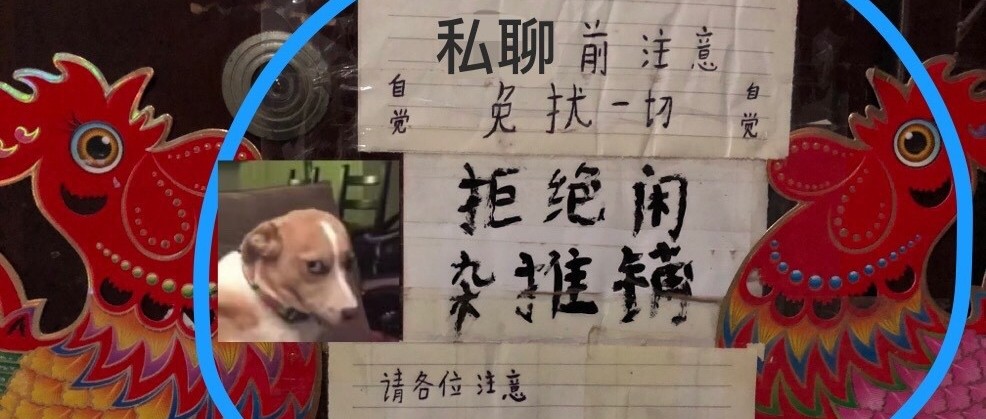 私聊前注意
自觉 免扰一切 自觉
拒绝闲
杂推销
请各位注意